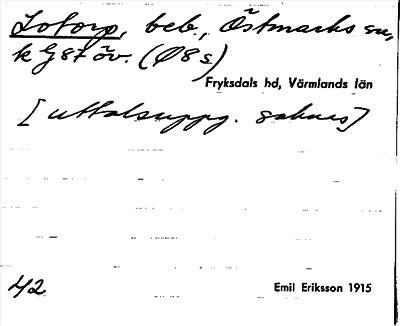 Lotorp, beb., Östmarks sn,
k G 87 öv. (Ø 8 s)
Fryksdals hd, Värmlands län
[uttalsuppg. saknas]
42
Emil Eriksson 1915